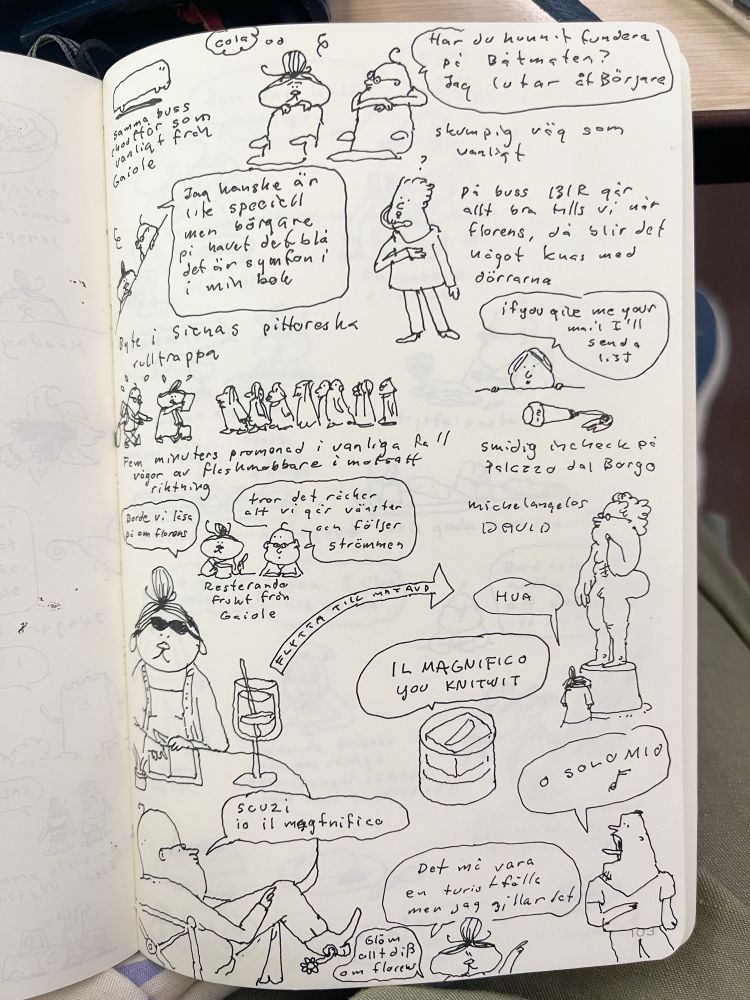 cola
Har du hunnit fundera
på Båtmaten?
Jag lutar åt Börjare
samma buss
chaufför som
vanligt från
Gaiole
skumpig väg som
vanligt
Jag kanske är
lite speciell
men börgare
på havet det blå
det är symfoni
i min bok
?
på buss 131R går
allt bra tills vi når
florens, då blir det
något knas med
dörrarna
Byte i Sienas pittoreska
rulltrappa
if you give me your
mail I'll
send a
list
Fem minuters promenad i vanliga fall
vågor av fleshmobbare i motsatt
riktning
smidig incheck på
Palazzo dal Borgo
Borde vi läsa
på om florens
tror det räcker
att vi går vänster
och följer
strömmen
Resterande
frukt från
Gaiole
michelangelos
DAVID
FLYTTA TILL MATAVD
HUA
IL MAGNIFICO
YOU KNITWIT
O SOLO MIO
scuzi
io il magnifico
Det må vara
en turistfälla
men jag gillar det
Glöm
allt diß
om florens
103